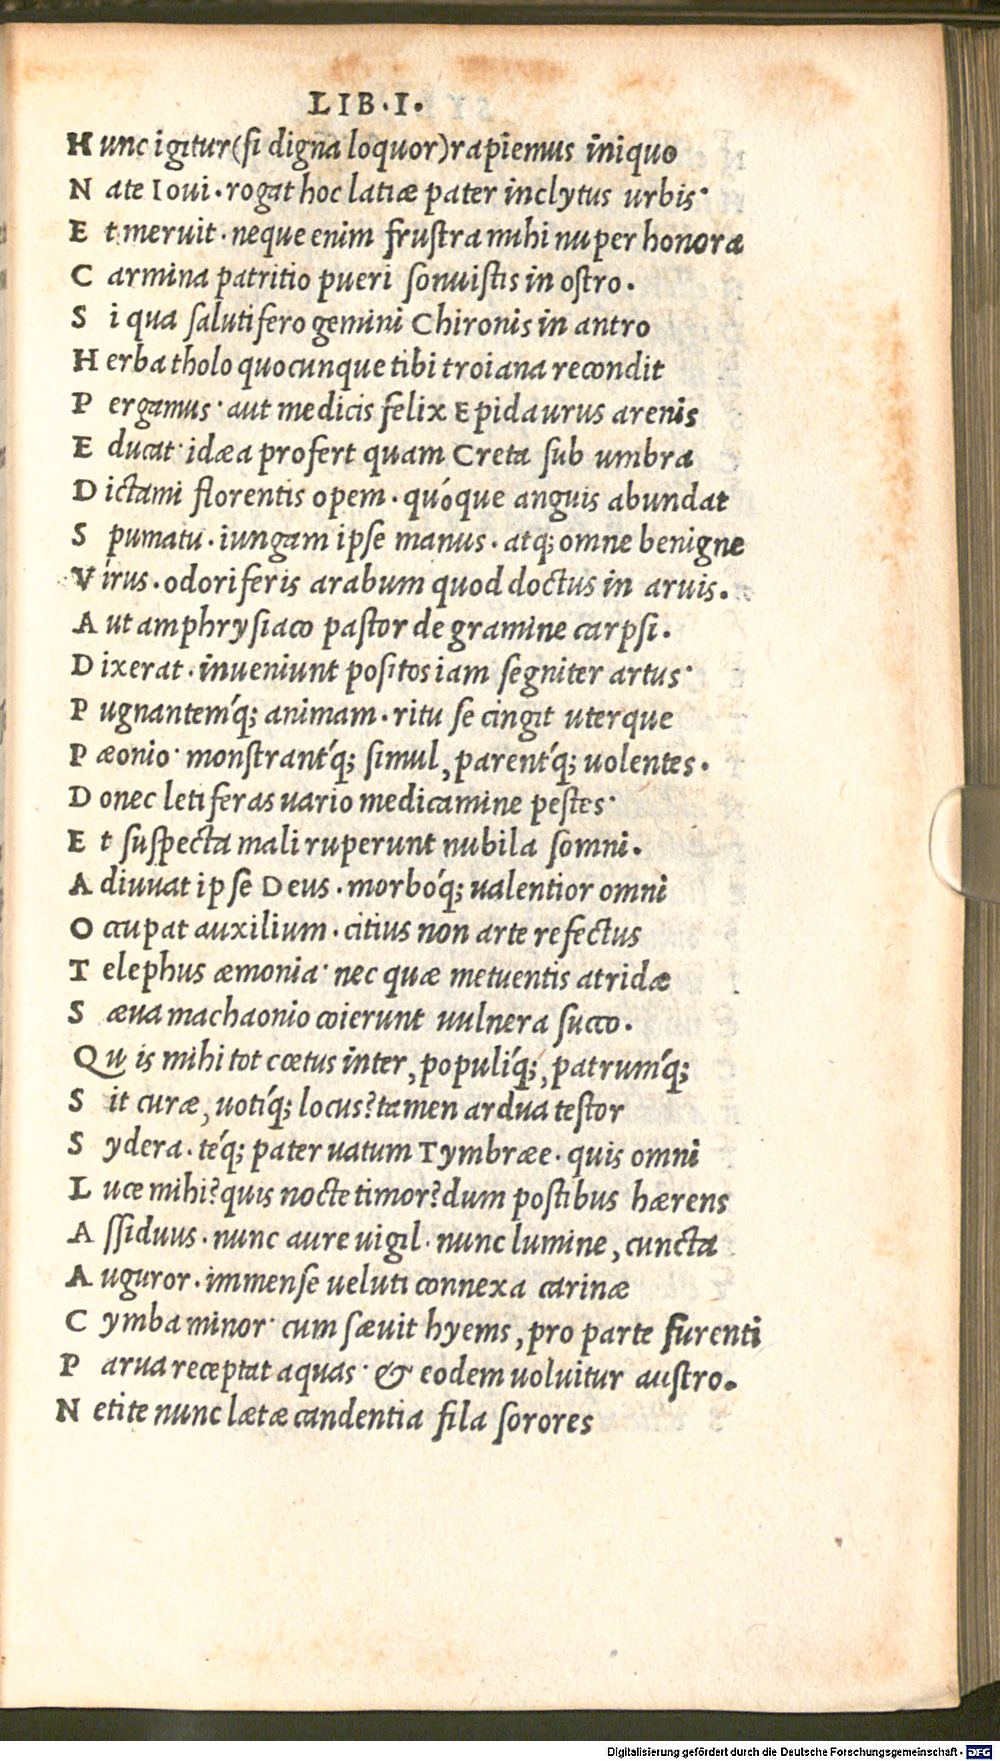 LIB·I·
H unc igitur(ſi digna loquor)rapiemus iniquo
N ate Ioui·rogat hoc latiæ pater inclytus urbis·
E t meruit·neque enim fruſtra mihi nuper honora
C armina patritio pueri ſonuiſtis in oſtro.
S i qua ſalutifero gemini Chironis in antro
H erba tholo quocunque tibi troiana recondit
P ergamus·aut medicis felix Epidaurus arenis
E ducat·idæa profert quam Creta ſub umbra
D ictami florentis opem·quóque anguis abundat
S pumatu·iungam ipſe manus·atq; omne benigne
V irus·odoriferis arabum quod doctus in aruis.
A ut amphryſiaco paſtor de gramine carpſi.
D ixerat·inueniunt poſitos iam ſegniter artus·
P ugnanteḿq; animam·ritu ſe cingit uterque
P æonio·monſtrant́q; ſimul, parent́q; uolentes.
D onec letiferas uario medicamine peſtes·
E t ſuſpecta mali ruperunt nubila ſomni.
A diuuat ipſe Deus·morbóq; ualentior omni
O ccupat auxilium·citius non arte refectus
T elephus æmonia·nec quæ metuentis atridæ
S æua machaonio coierunt uulnera ſucco.
Qu is mihi tot cœtus inter, populíq;, patruḿq;
S it curæ, uotíq; locus?tamen ardua teſtor
S ydera·téq; pater uatum Tymbræe·quis omni
L uce mihi?quis nocte timor?dum poſtibus hærens
A ſſiduus·nunc aure uigil·nunc lumine, cuncta
A uguror·immenſe ueluti connexa carinæ
C ymba minor·cum ſæuit hyems, pro parte furenti
P arua receptat aquas·& eodem uoluitur auſtro.
N etite nunc lætæ candentia fila ſorores
Digitalisierung gefördert durch die Deutsche Forschungsgemeinschaft - DFG